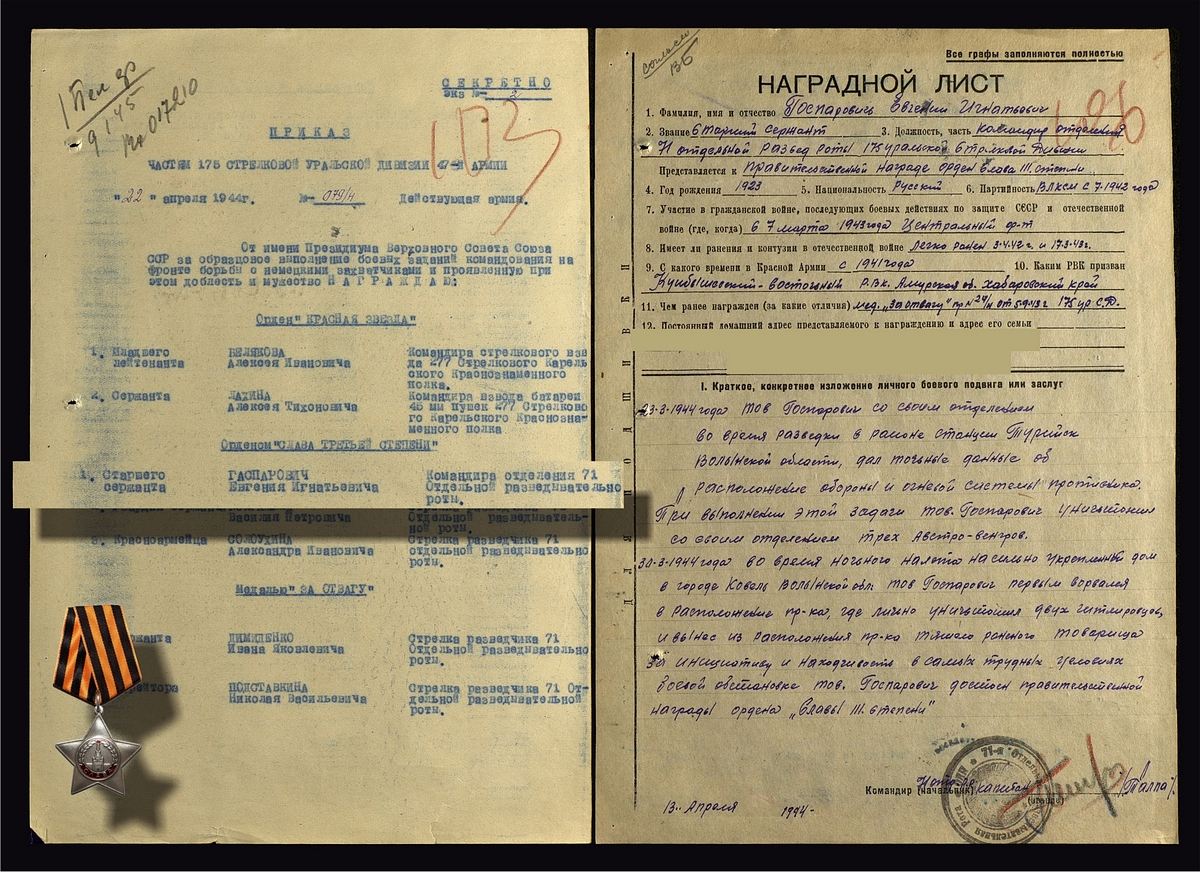 СЕКРЕТНО
экз №
ПРИКАЗ
ЧАСТЯМ 175 СТРЕЛКОВОЙ УРАЛЬСКОЙ ДИВИЗИИ 47-й АРМИИ
"22" апреля 1944г. № 079/4 Действующая армия.
От имени Президиума Верховного Совета Союза
ССР за образцовое выполнение боевых заданий командования на
фронте борьбы с немецкими захватчиками и проявленную при
этом доблесть и мужество НАГРАЖДАЮ:
Орден "КРАСНАЯ ЗВЕЗДА"
1. Младшего БЕЛЯКОВА Командира стрелкового взв
лейтенанта Алексея Ивановича да 277 Стрелкового Карель
ского Краснознаменного
полка.
2. Сержанта Командира взвода батареи
Алексея Тихоновича 45 мм пушек 277 Стрелково
го Карельского Краснозна-
менного полка
Орденом "СЛАВА ТРЕТЬЕЙ СТЕПЕНИ"
1. Старшего ГАСПАРОВИЧ Командира отделения 71
сержанта Евгения Игнатьевича Отдельной разведывательно
роты.
Василия Петровича Отдельной разведыватель-
ной роты.
3. Красноармейца СОЛОУХИНА Стрелка разведчика 71
Александра Ивановича отдельной разведывательно
роты.
Медалью "ЗА ОТВАГУ"
ржанта ДИМИДЕНКО Стрелка разведчика 71
Ивана Яковлевича Отдельной разведывательно
роты.
рейтора ПОДСТАВКИНА Стрелка разведчика 71 От-
Николая Васильевича дельной разведывательной
роты.
согласен
Все графы заполняются полностью
НАГРАДНОЙ ЛИСТ
1. Фамилия, имя и отчество Госпарович Евгений Игнатьевич
2. Звание Старший сержант 3. Должность, часть командир отделения
71 отдельной развед роты 175 уральской Стрелковой Дивизии
Представляется к правительственной награде орден Слава III степени
4. Год рождения 1923 5. Национальность Русский 6. Партийность ВЛКСМ с 7.1942 года
7. Участие в гражданской войне, последующих боевых действиях по защите СССР и отечественной
войне (где, когда) с 7 марта 1943 года Центральный ф-т
8. Имеет ли ранения и контузии в отечественной войне легко ранен 3.4.42 г. и 17.3.43 г.
9. С какого времени в Красной Армии с 1941 года 10. Каким РВК призван
Куйбышевский-восточный Р.В.К. Амурская об. хабаровский край
11. Чем ранее награжден (за какие отличия) мед. "За отвагу" пр №24/н от 5.9.43 г 175 ур С.Д.
12. Постоянный домашний адрес представляемого к награждению и адрес его семьи
I. Краткое, конкретнее изложение личного боевого подвига или заслуг
23-3-1944 года тов Госпарович со своим отделением
во время разведки в районе станции Турийск
Волынской области, дал точные данные об
расположение обороны и огневой системы противника.
При выполнении этой задачи тов. Госпарович уничтожил
со своим отделением трех Австро-венгров.
30-3-1944 года во время ночного налета на сильно укрепленный дом
в городе Ковель Волынской обл. тов Госпарович первым ворвался
в расположение пр-ка, где лично уничтожил двух гитлеровцев,
и вынес из расположения пр-ка тяжело раненого товарища
За инициативу и находчивость в самых трудных условиях
боевой обстановке тов. Госпарович достоен правительственной
награды ордена "Славы III. степени"
Командир (начальник) капитан /Талпа/
13.. Апреля 1944-